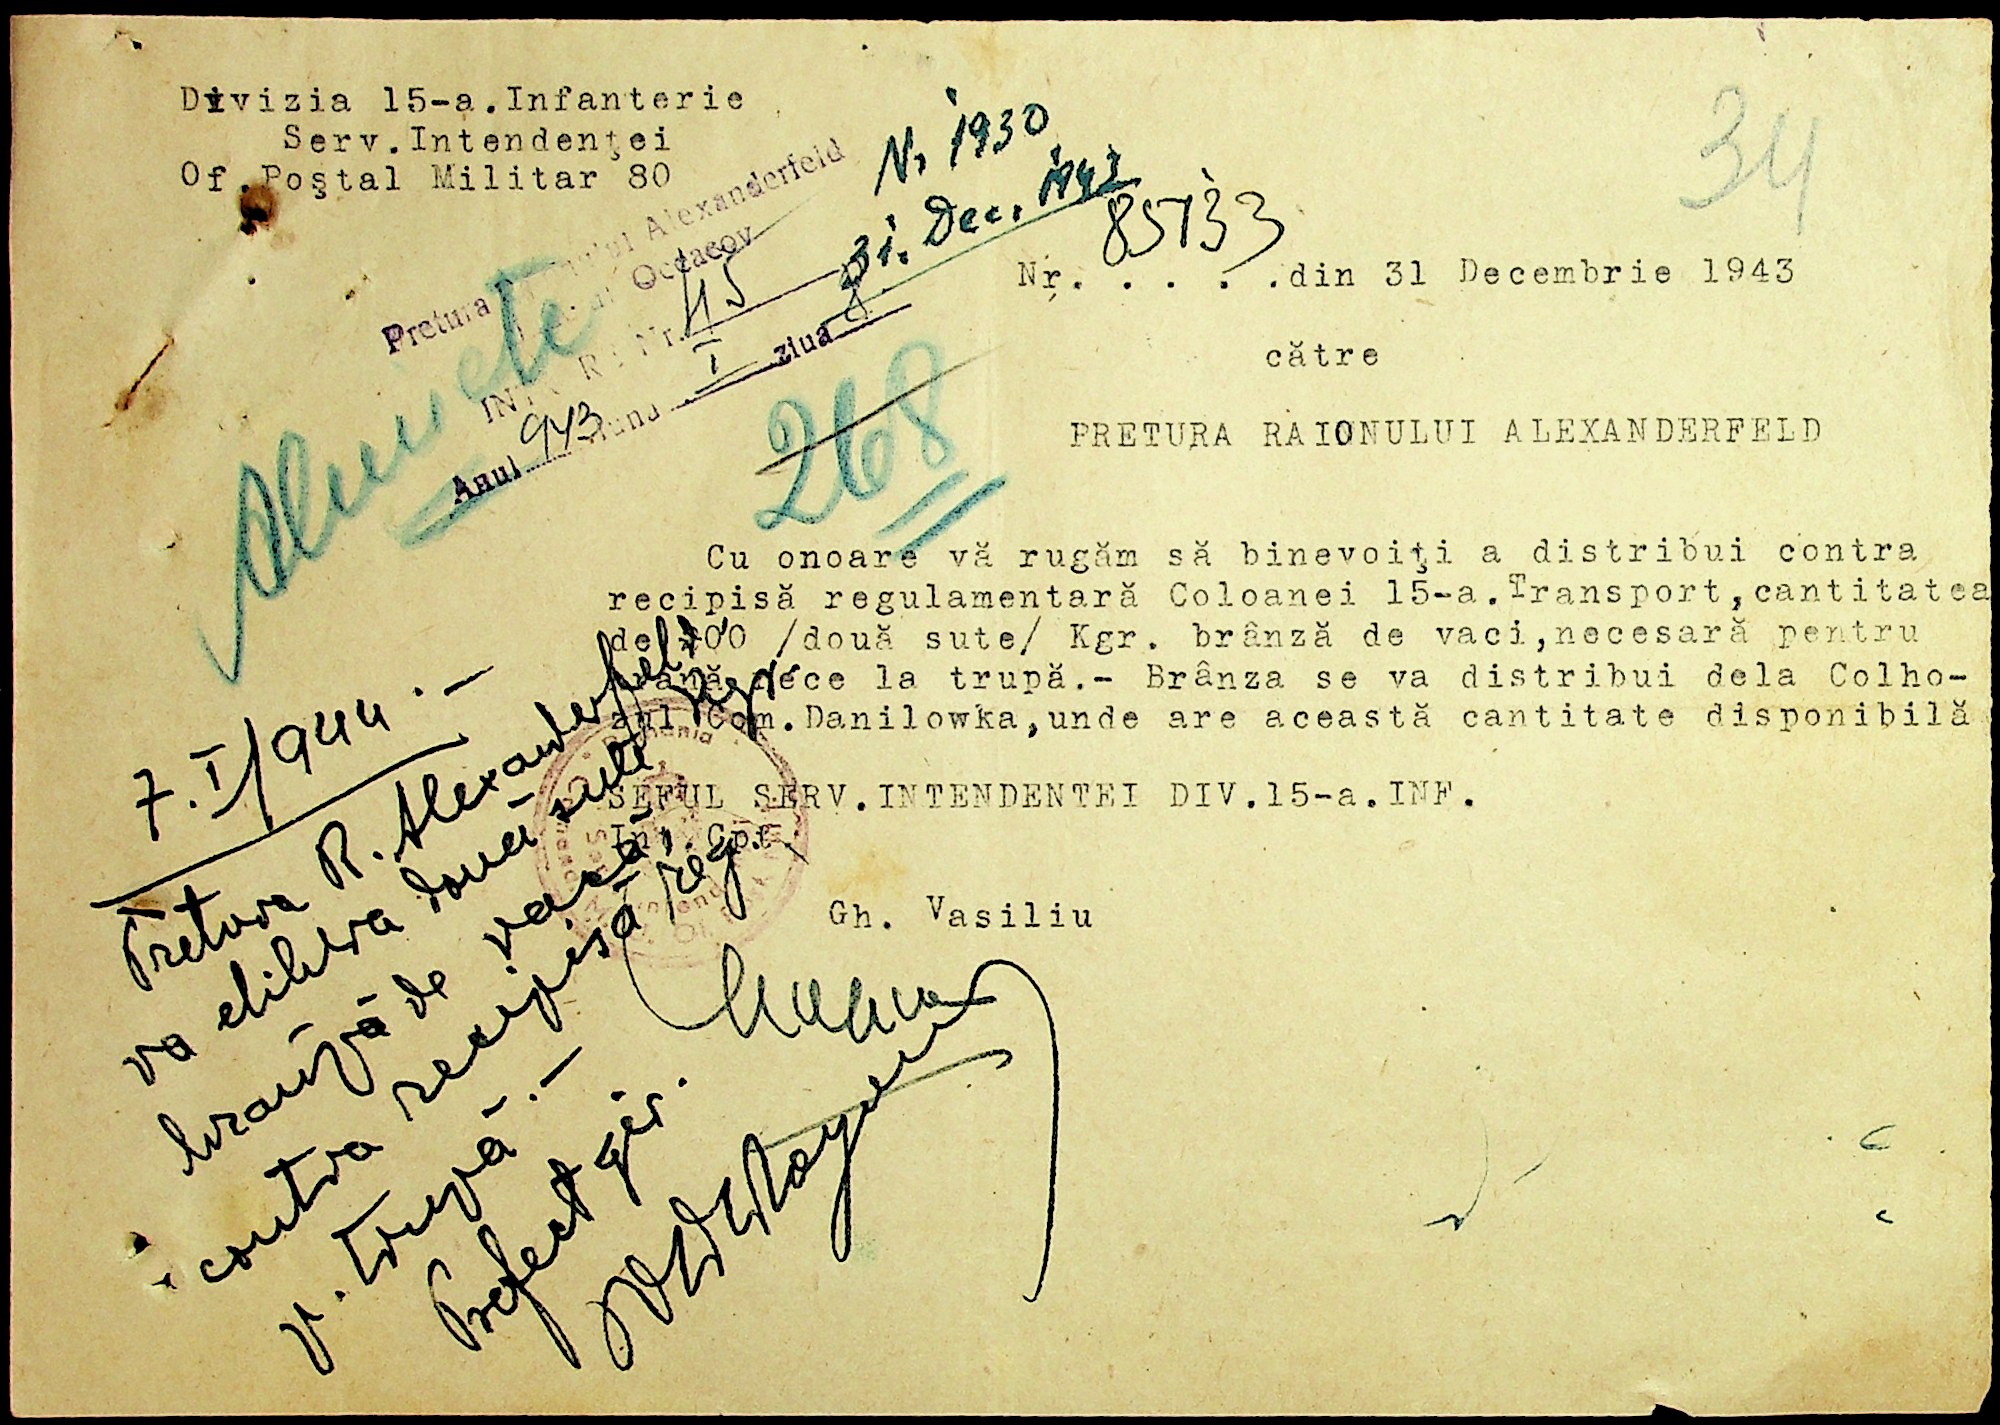 Divizia 15-a.Infanterie
Serv.Intendenţei
Of.Poştal Militar 80
34
Nr 1930
31. Dec. 1943
Pretura Alexanderfeld
Oceacov
Nr. 115
Anul 943 I ziua 8
85133
Nr. . . . . .din 31 Decembrie 1943
către
PRETURA RAIONULUI ALEXANDERFELD
268
Cu onoare vă rugăm să binevoiţi a distribui contra
recipisă regulamentară Coloanei 15-a.Transport,cantitatea
de 200 /două sute/ Kgr. brânză de vaci,necesară pentru
hrană rece la trupă.- Brânza se va distribui dela Colho-
zul Com.Danilowka,unde are această cantitate disponibilă
SEFUL SERV.INTENDENTEI DIV.15-a.INF.
Int.Cpt.
Gh. Vasiliu
România
7.I/944.-
Pretura R. Alexanderfeld
va elibera două sute kgr.
brânză de vacă,
contra recipisă reg.
p. trupă.-
Prefect